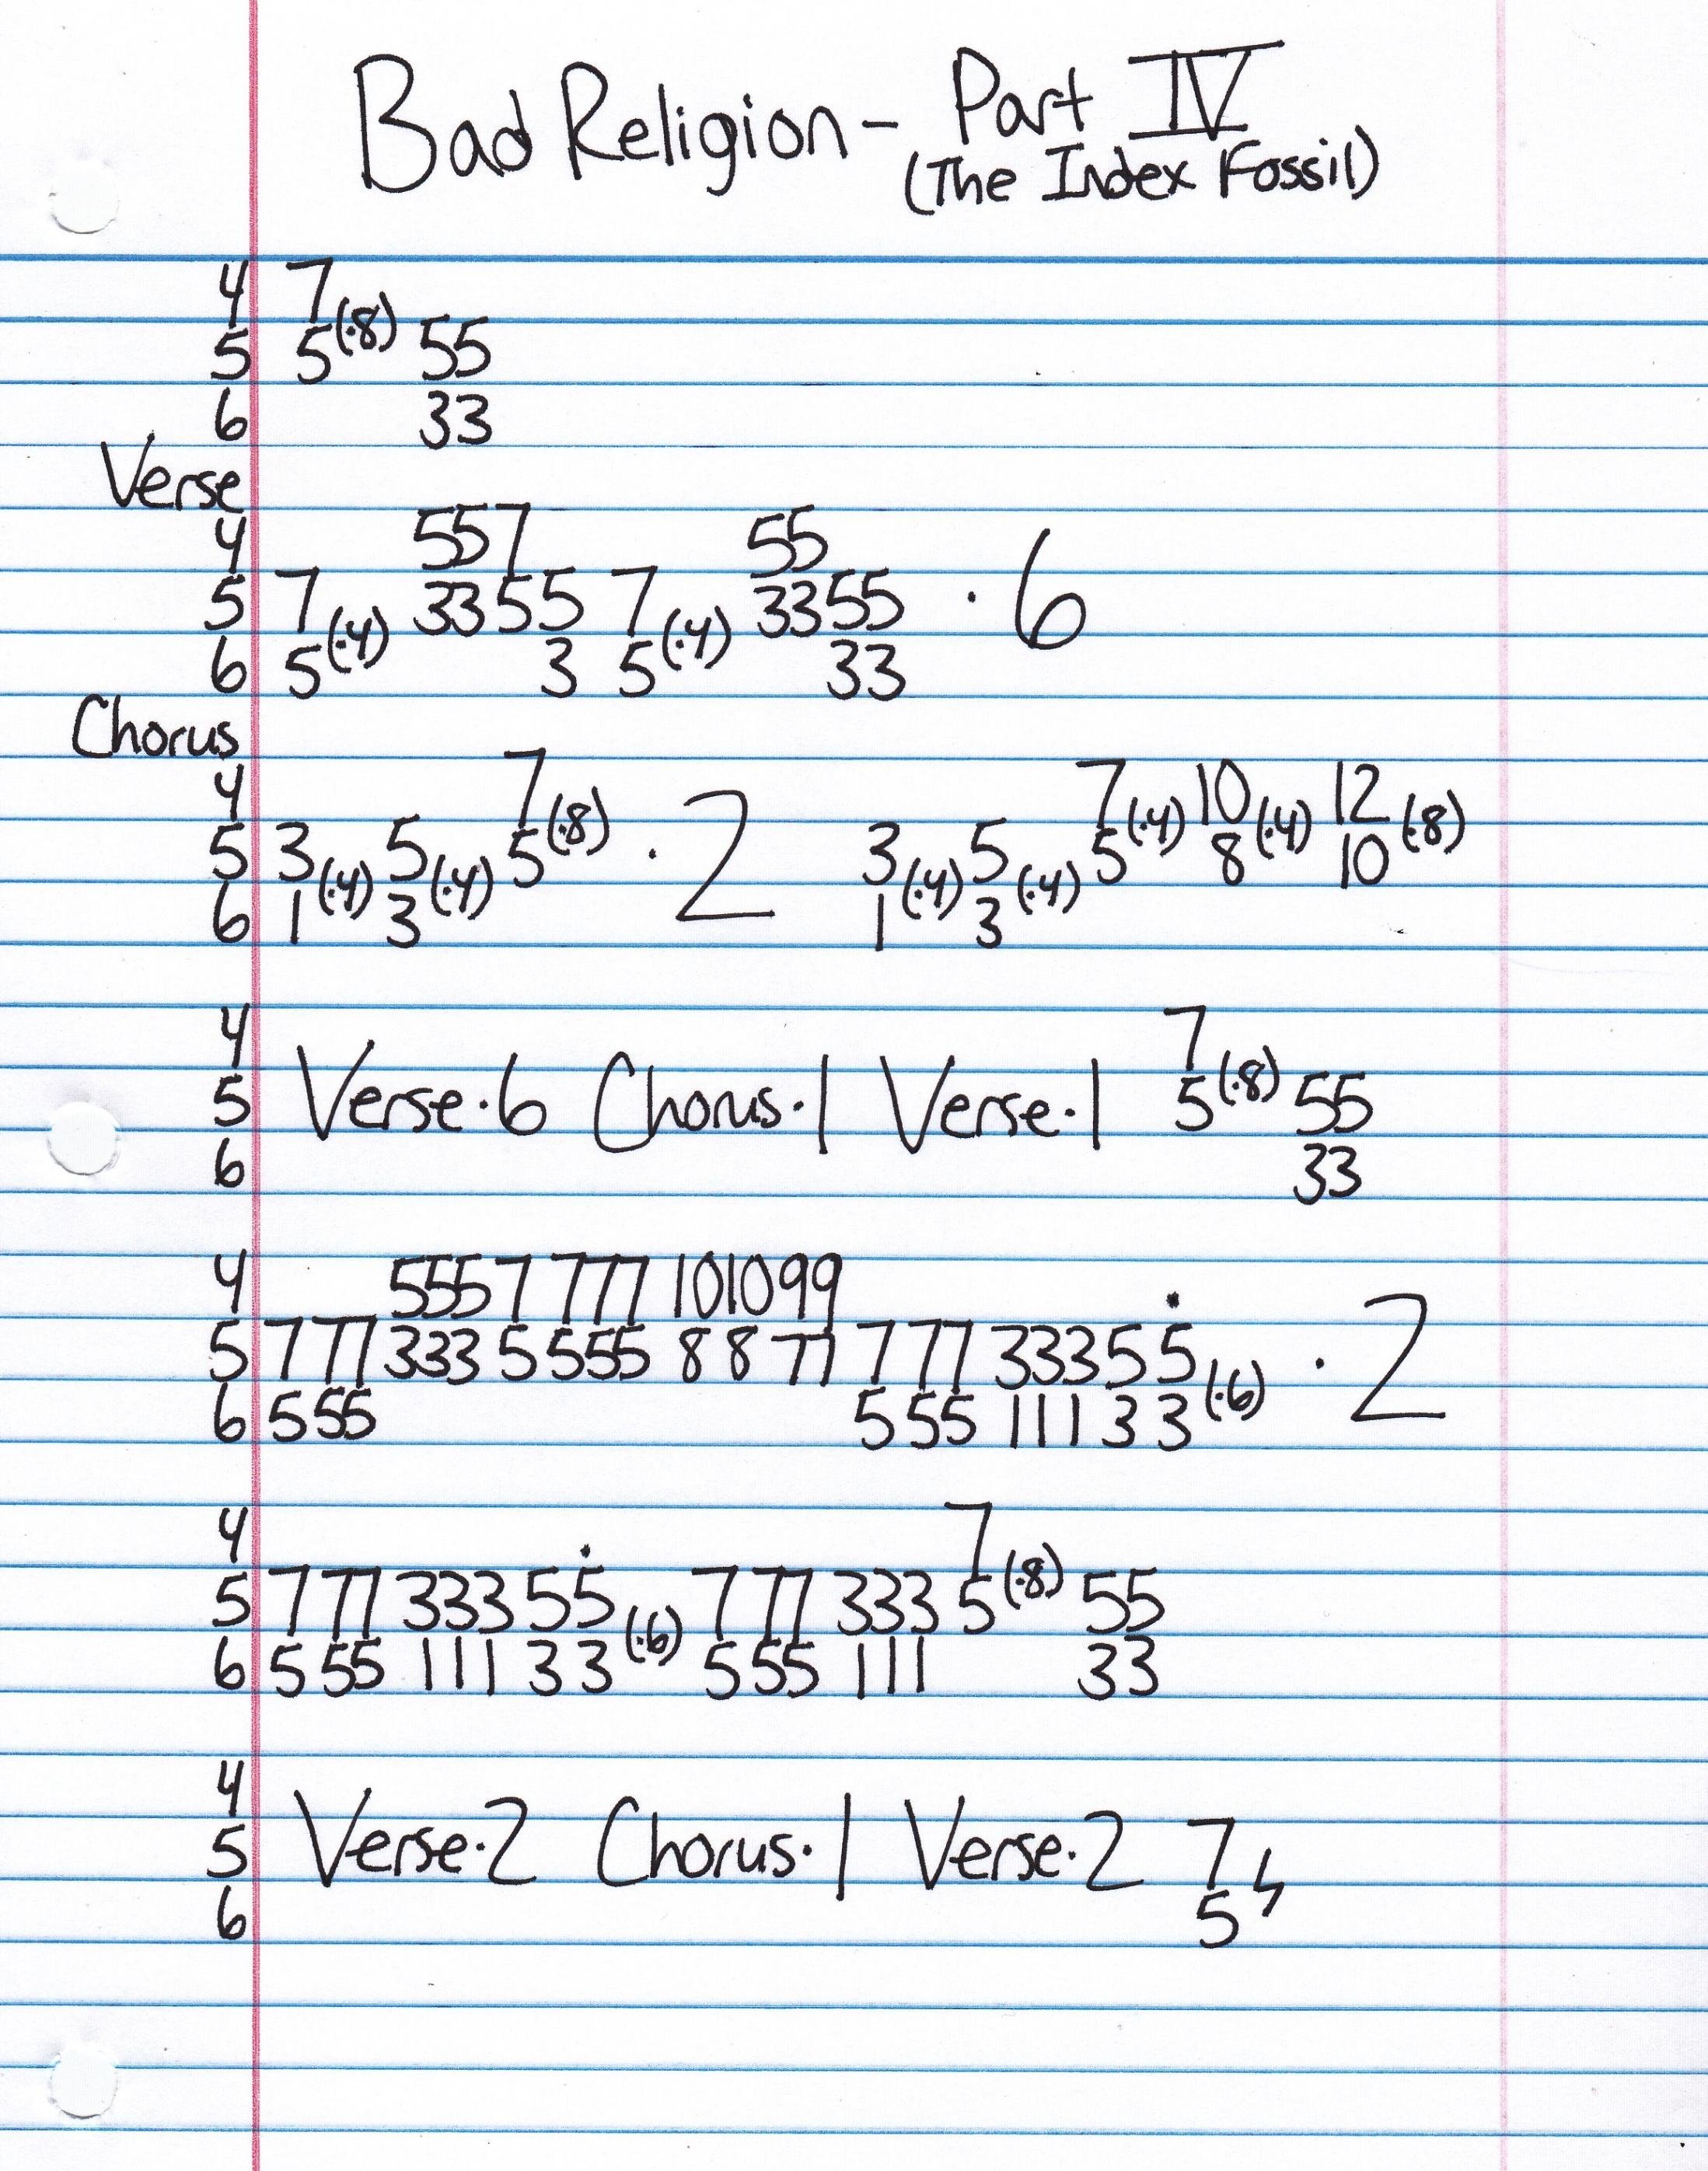 Bad Religion - Part IV
(The Index Fossil)
4 7
5 5(·8) 55
6 33
Verse
4 557 55
5 7 3355 7 3355 · 6
6 5(·4) 3 5(·4) 33
Chorus
4 7 7(·4) 10(·4) 12(·8)
5 3 5 5(·8) · 2 3 5 5 8 10
6 1(·4) 3(·4) 1(·4) 3(·4)
4 7
5 Verse·6 Chorus·1 Verse·1 5(·8) 55
6 33
4 555 7 777 10 10 99
5 7 77 333 5 555 8 8 77 7 77 333 5 5 (·6) · 2
6 5 55 5 55 111 3 3
4 7
5 7 77 333 5 5 (·6) 7 77 333 5(·8) 55
6 5 55 111 3 3 5 55 111 33
4
5 Verse·2 Chorus·1 Verse·2 7
6 5